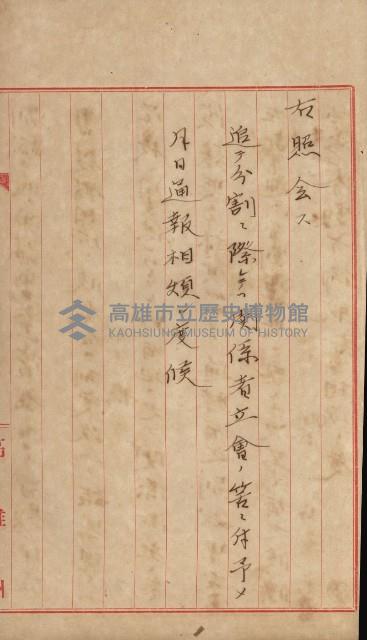 右照会ス
追テ分割ニ際シテハ関係者立會ノ筈ニ付予メ
月日通報相煩シ度候
高雄市立歷史博物館
KAOHSIUNG MUSEUM OF HISTORY
高雄州